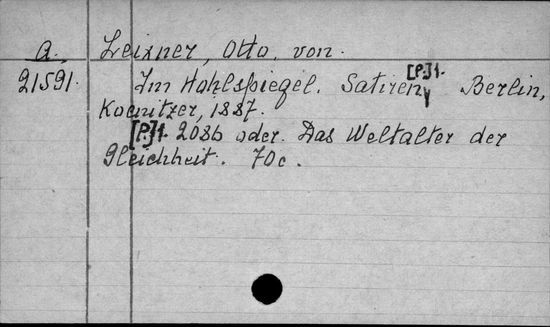 a. Leixner, Otto, von.
21591. Im Hohlspiegel. Satiren [P.]1. Berlin,
Kosnitzer, 1887.
[P.]1. 2086 oder. Das Weltalter der
Gleichheit. 70c.